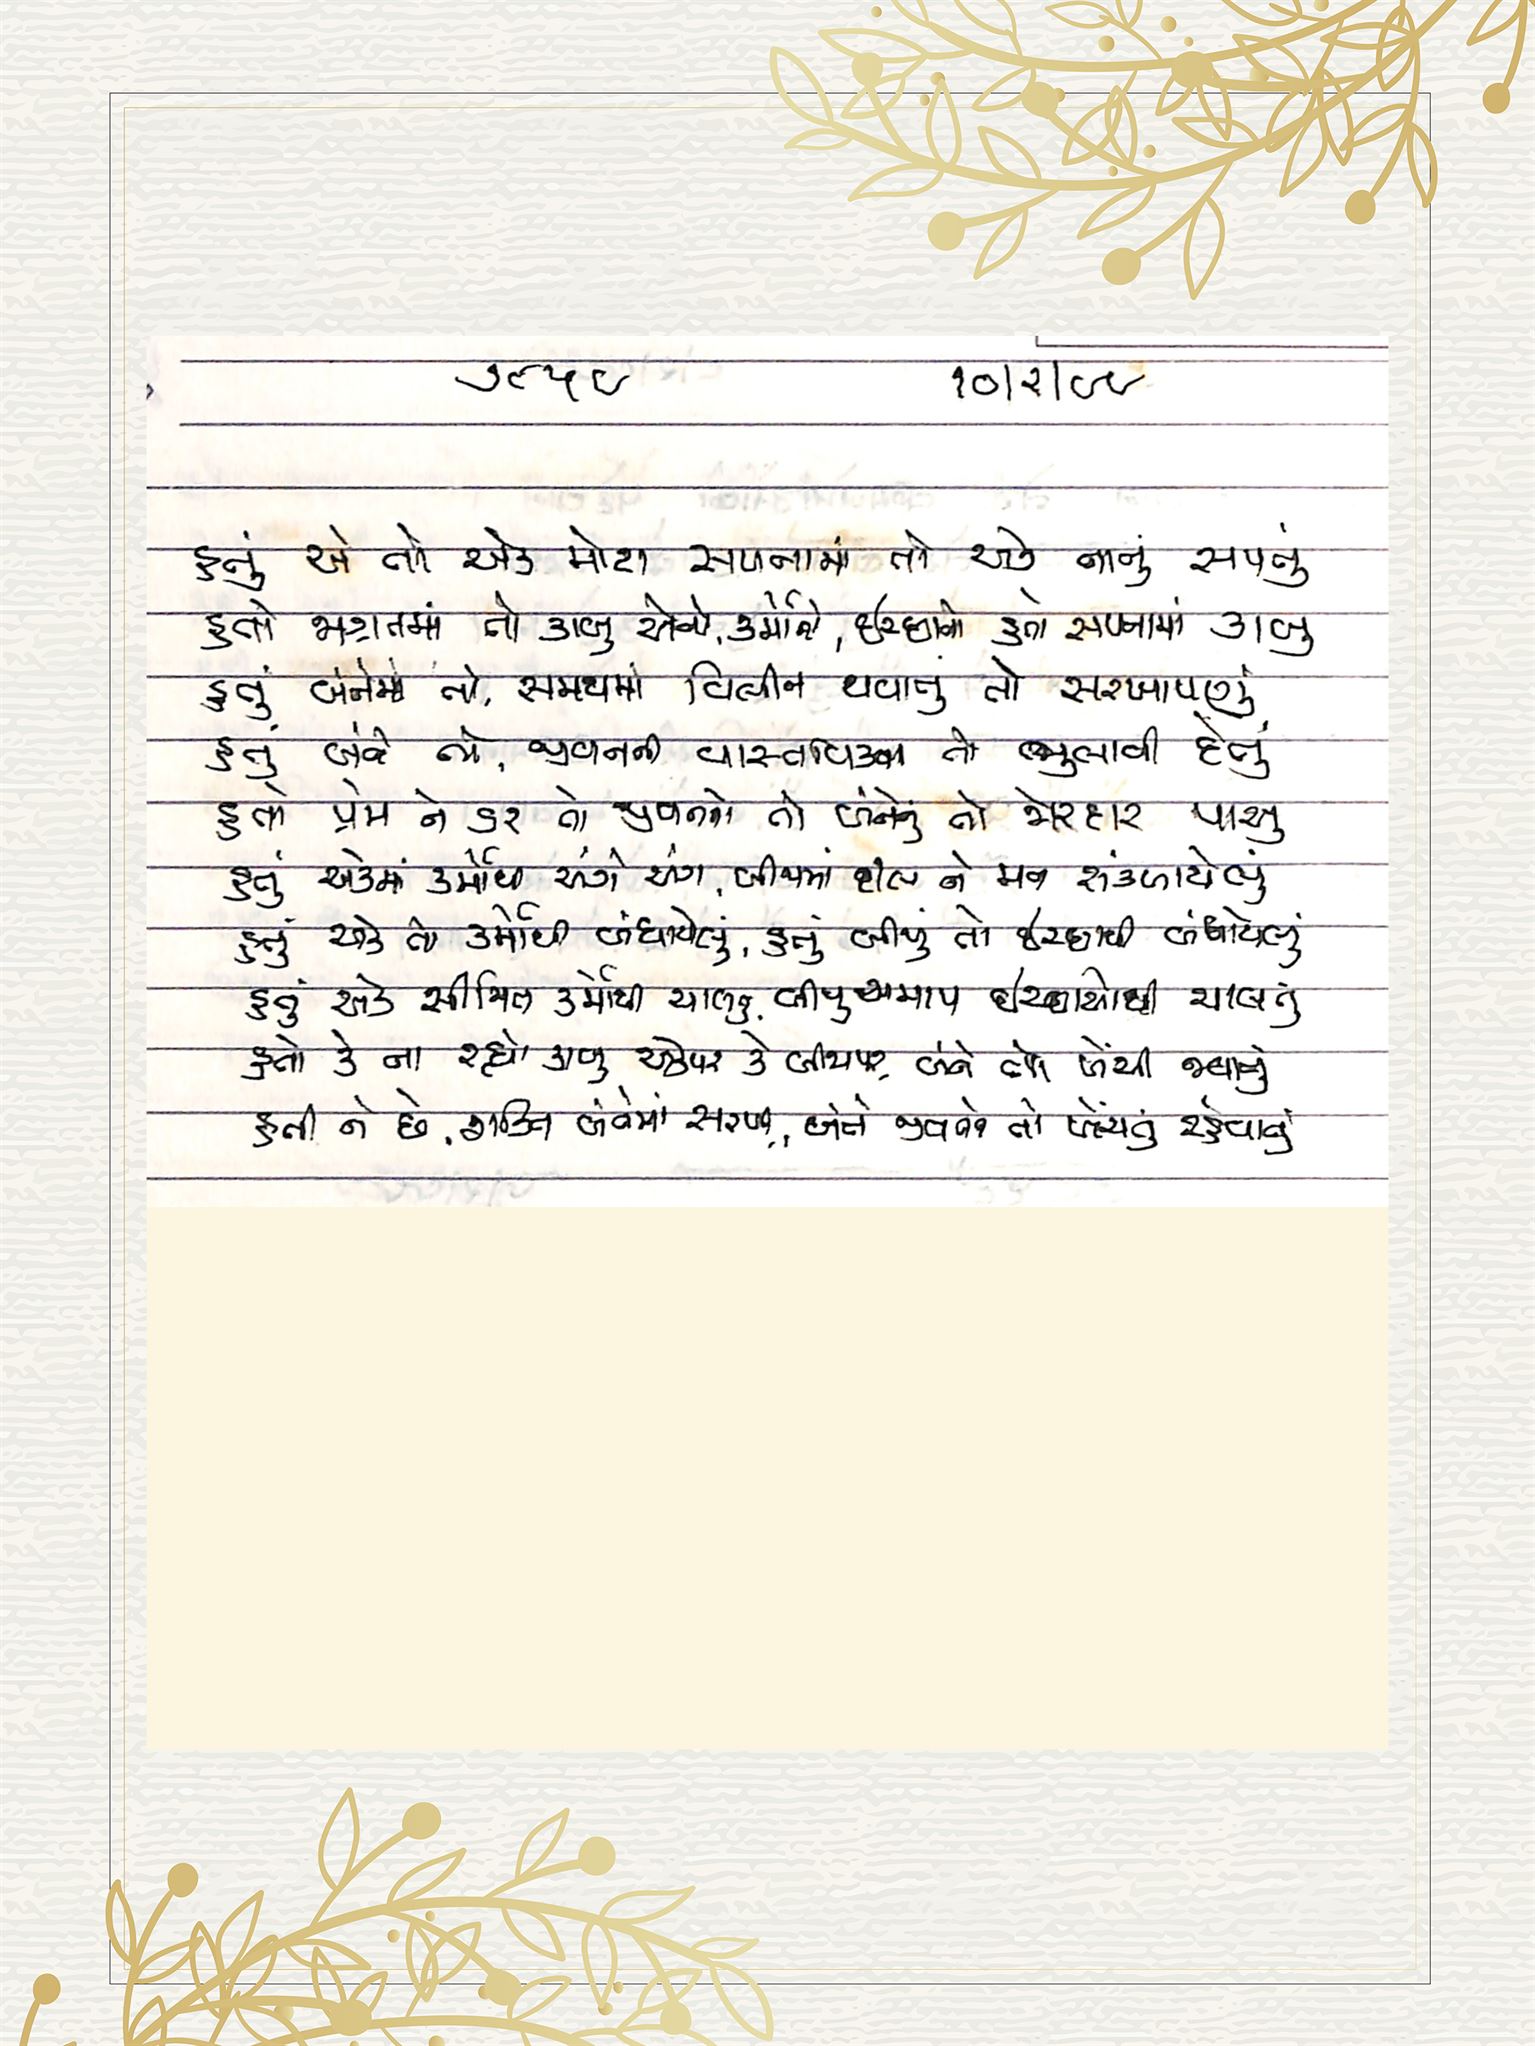 ૭૯૫૯ ૧૦/૨/૯૯
હતું એ તો એક મોટા સપનામાં તો એક નાનું સપનું
હતો જાગ્રતમાં તો કાબુ એનો, કર્મોનો, ઈચ્છાનો હતો સપનામાં કાબુ
હતું બંનેમાં તો, સમયમાં વિલીન થવાનું તો સરખાપણું
હતું બંને તો, જીવનની વાસ્તવિક્તા તો ભુલાવી દેતું
હતો પ્રેમ ને ડર તો જીવનનો તો બંનેનું તો જોરદાર પાસુ
હતું એકમાં કર્મોથી અંગે અંગ, બીજામાં દીલ ને મન સંકળાયેલું
હતું એક તો કર્મોથી બંધાયેલું, હતું બીજું તો ઈચ્છાથી બંધાયેલું
હતું એક સીમિત કર્મોથી ચાલતુ, બીજુ અમાપ ઈચ્છાઓથી ચાલતું
હતો કે ના રહ્યો કાબુ એકપર કે બીજાપર, બંને ખેંચી જવાનું
હતી ને છે, શક્તિ બંનેમાં સરખી, બંને જીવનને તો ખેંચતું રહેવાનું